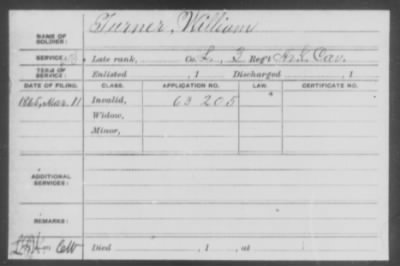 NAME OF SOLDIER: Turner, William
SERVICE: Late rank, Co. L, 3 Reg't Cav.
TERM OF SERVICE: Enlisted , 1 Discharged , 1
DATE OF FILING. CLASS. APPLICATION NO. LAW. CERTIFICATE NO.
1865, Mar. 11 Invalid, 63 205
Widow,
Minor,
ADDITIONAL SERVICES:
REMARKS:
Died , 1 , at